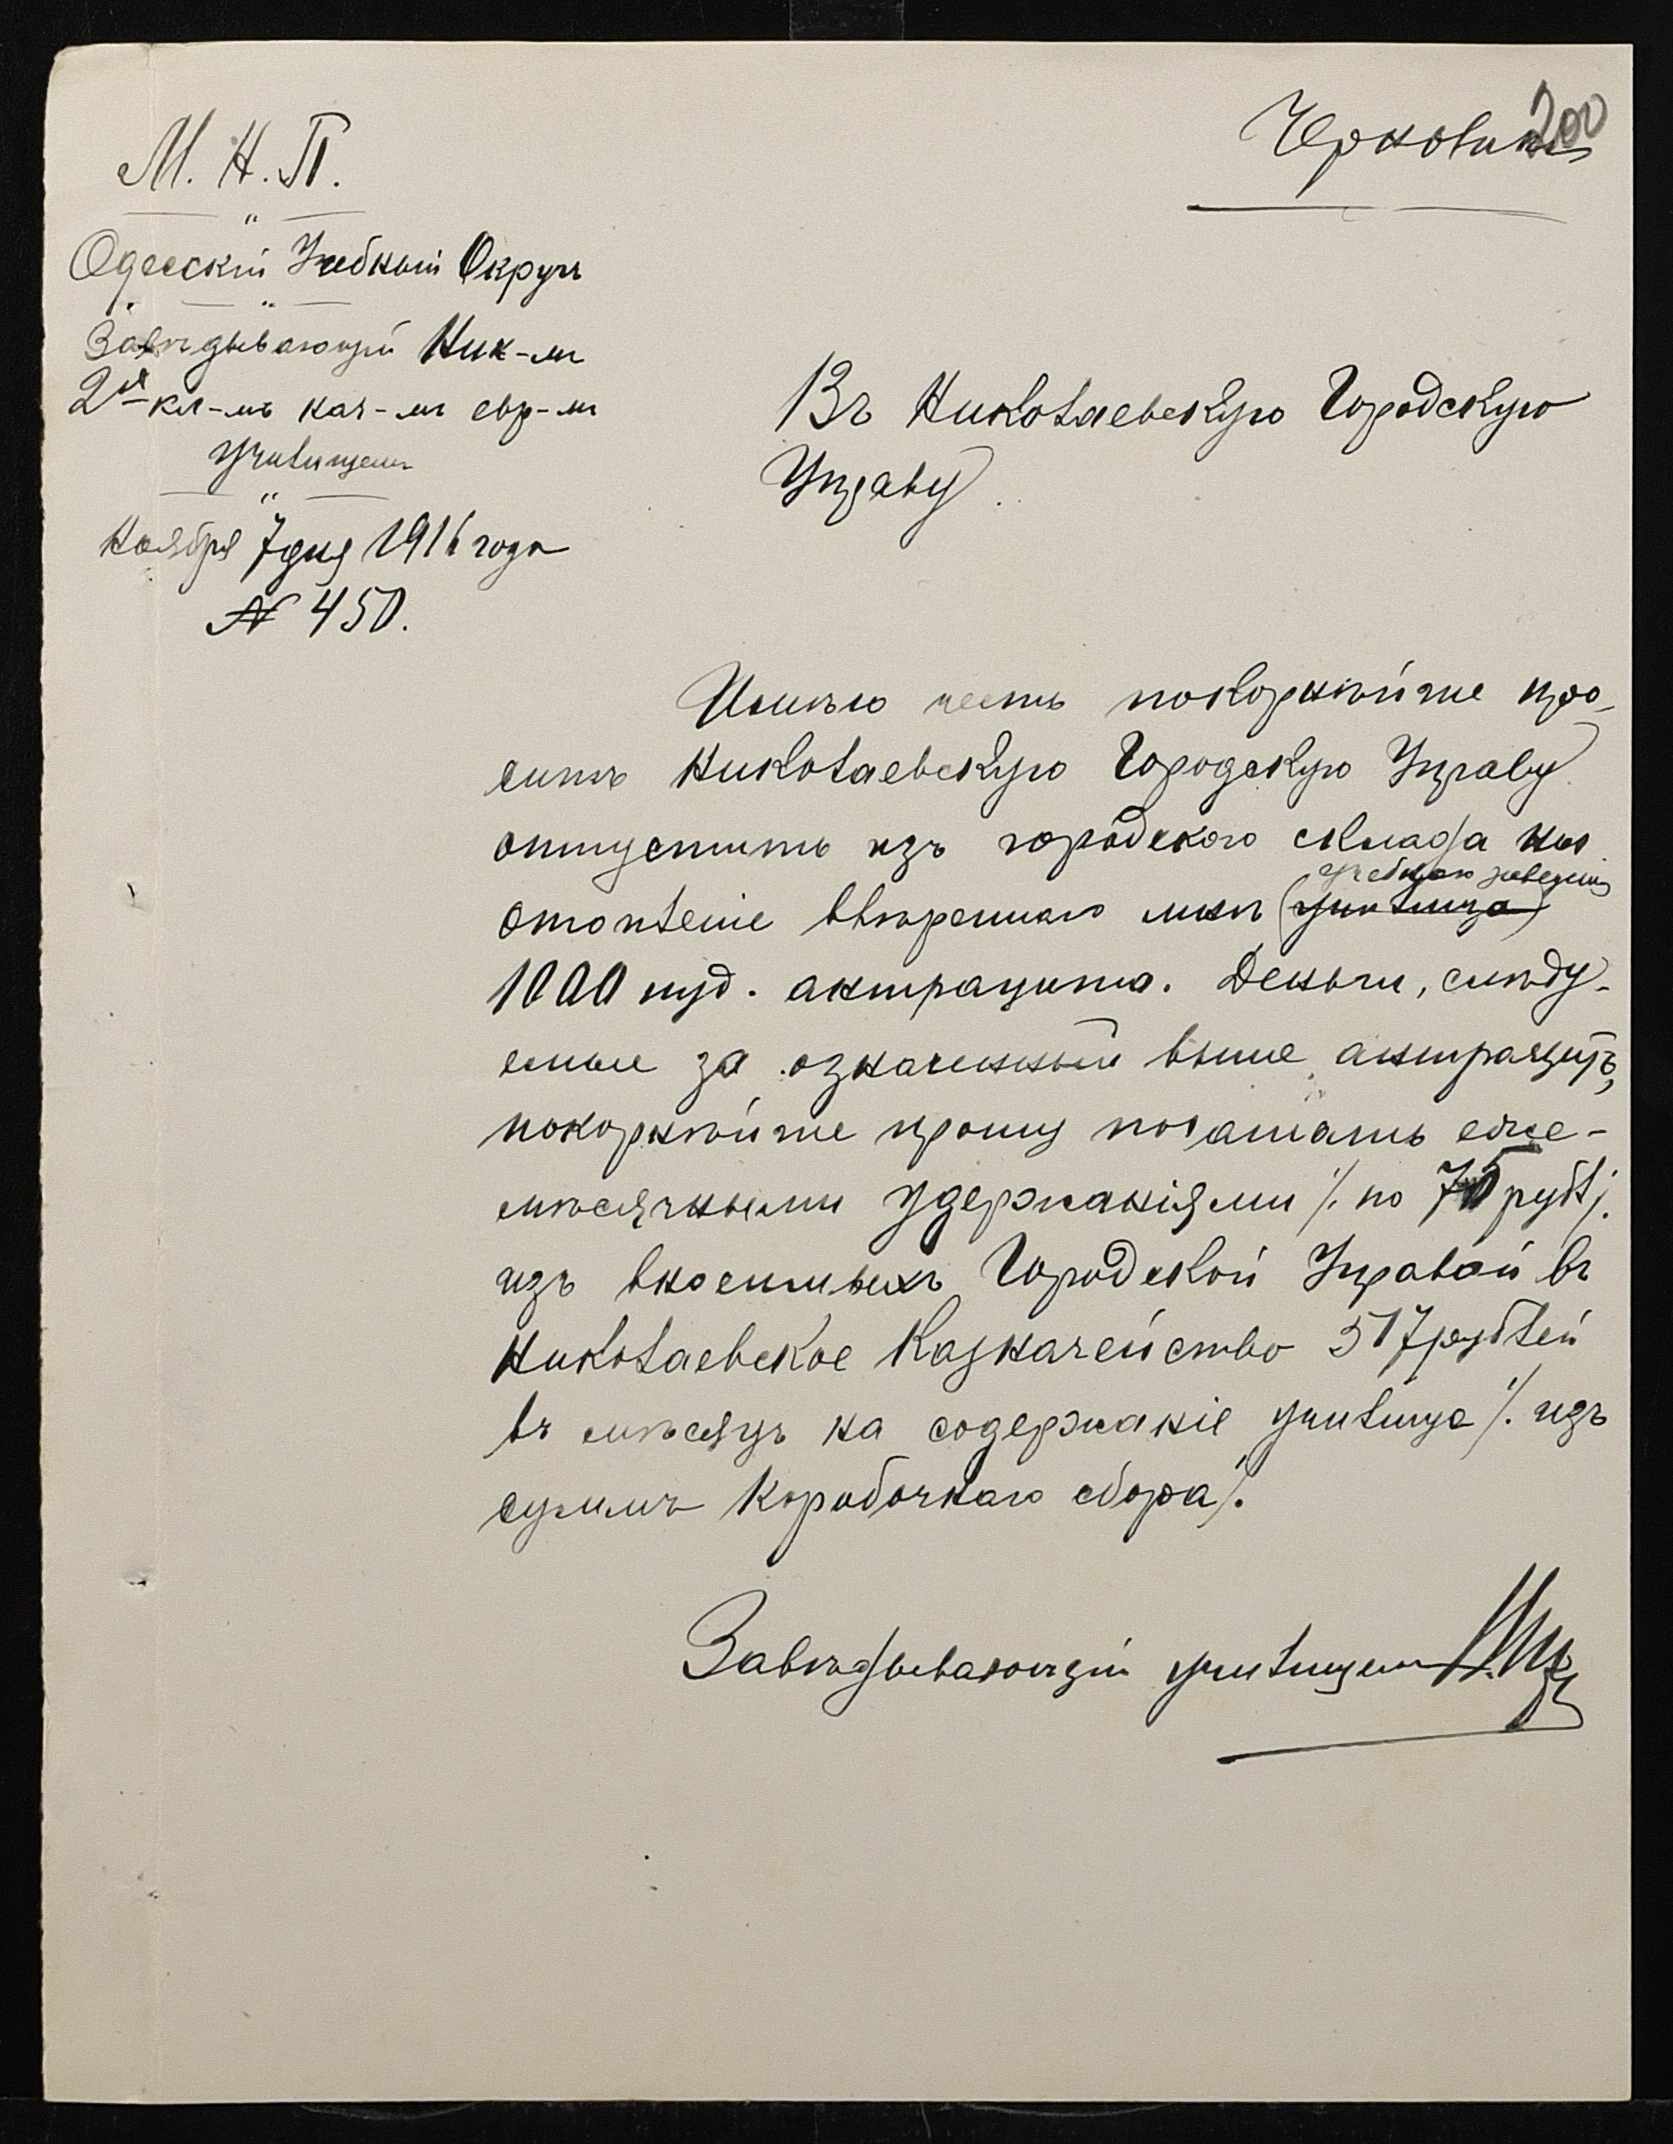 200
Черновикъ
М. Н. П.
Одесскій Учебный Округъ
Завѣдывающій Ник-мъ
2х-кл-мъ каз-мъ евр-мъ
училищемъ
Ноября 7 дня 1916 года
№ 450.
Въ Николаевскую Городскую
Управу.
Имѣю честь покорнѣйше про-
сить Николаевскую Городскую Управу
отпустить изъ городского склада на
учебнаго заведенія
отопленіе ввѣреннаго мнѣ (училища)
1000 пуд. антрацита. Деньги, слѣду-
емыя за означенный выше антрацитъ,
покорнѣйше прошу погашать еже-
мѣсячными удержаніями /. по 75 рубл/.
изъ вносимыхъ Городской Управой въ
Николаевское Казначейство 517 рублей
въ мѣсяцъ на содержаніе училища /. изъ
суммъ коробочнаго сбора/.
Завѣдывающій училищемъ